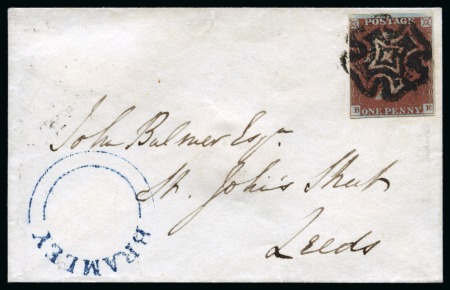 POSTAGE
B E
ONE PENNY
John Balmer Esqr.
St. John's Street
Leeds
BRAMLEY